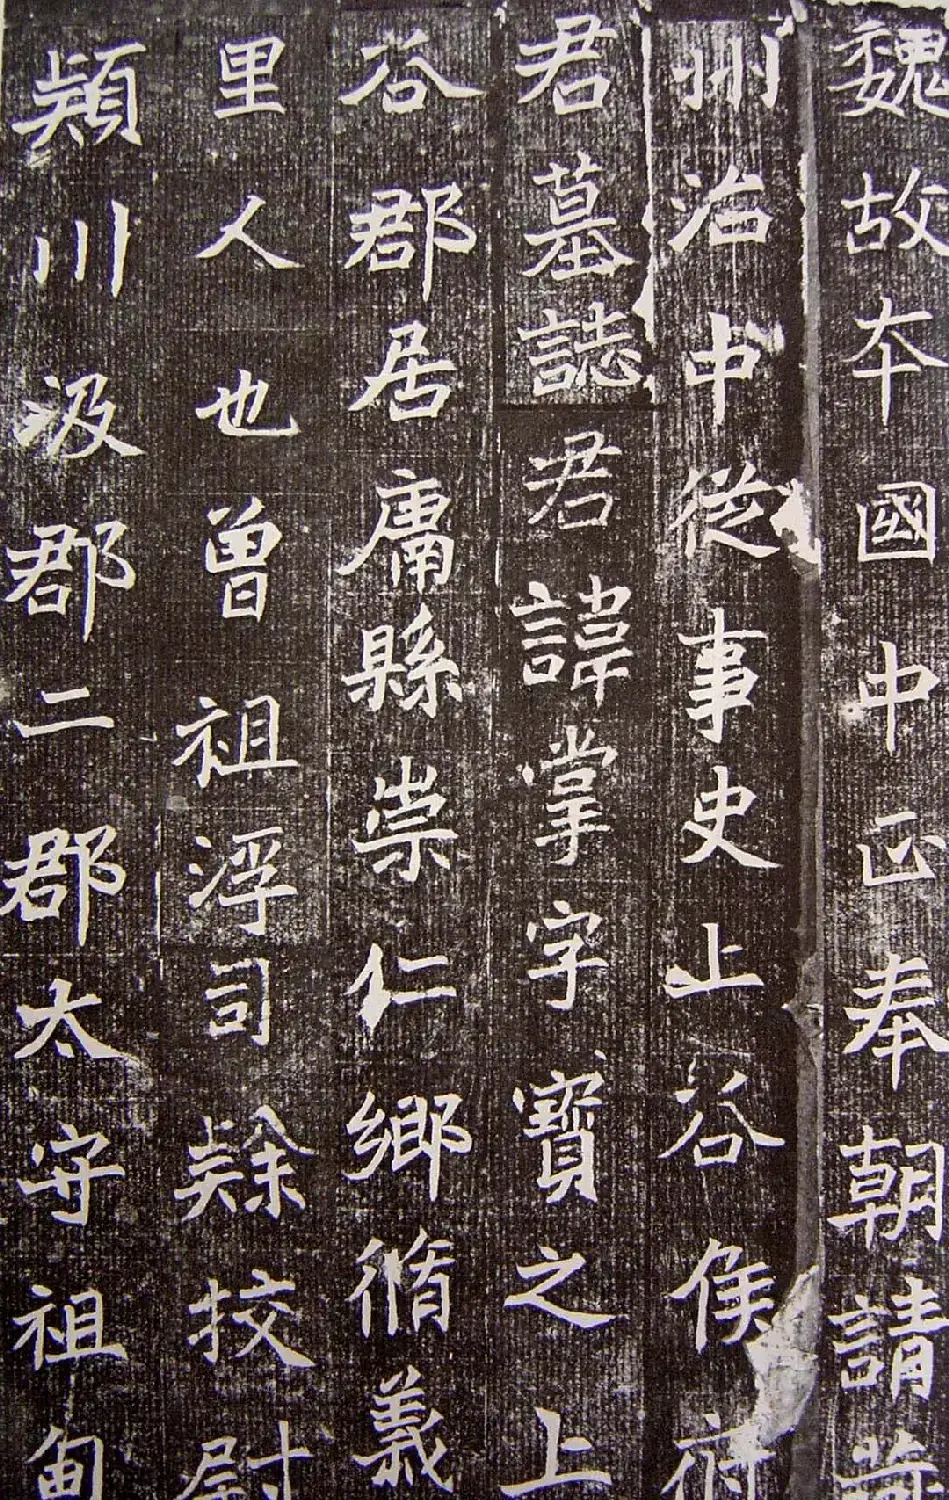 魏故本國中正奉朝請燕
州治中從事史上谷侯府
君墓誌君諱掌字寶之上
谷郡居庸縣崇仁鄉脩義
里人也曾祖浮司隸挍尉
潁川汲郡二郡太守祖甸